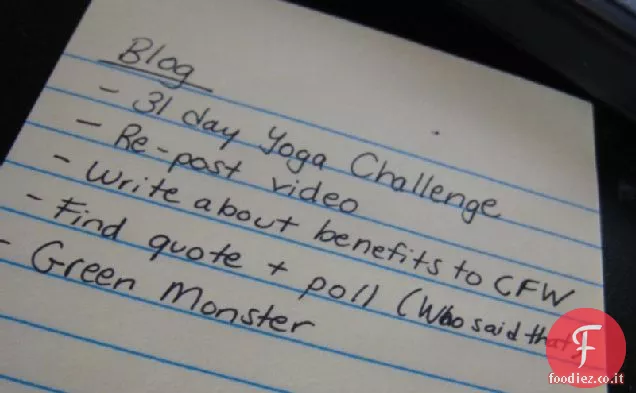 Blog
- 31 day Yoga Challenge
- Re-post video
- Write about benefits to CFW
- Find quote + poll (Who said that
- Green Monster
F
foodiez.co.it